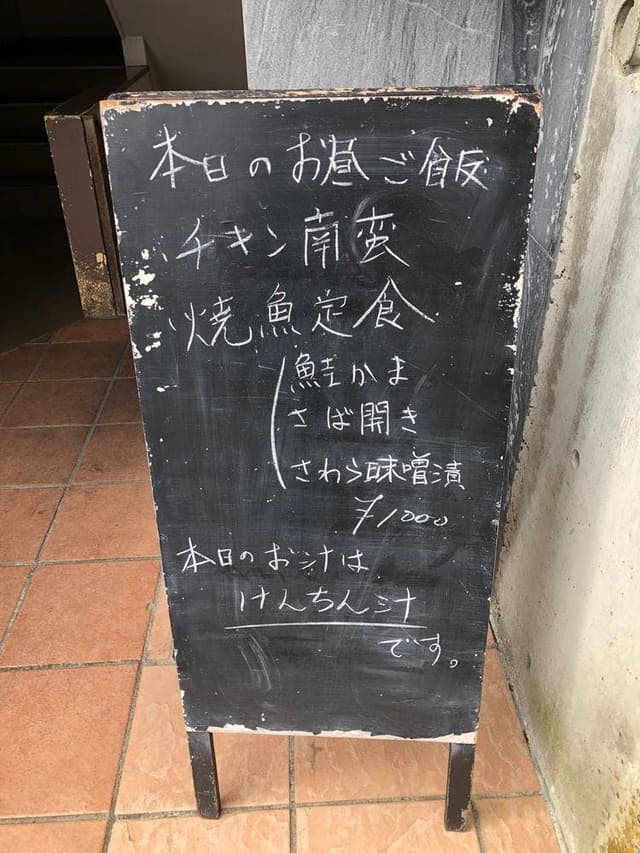 本日のお昼ご飯
チキン南蛮
焼魚定食
鮭かま
さば開き
さわら味噌漬
¥1000
本日のお汁は
けんちん汁
です。